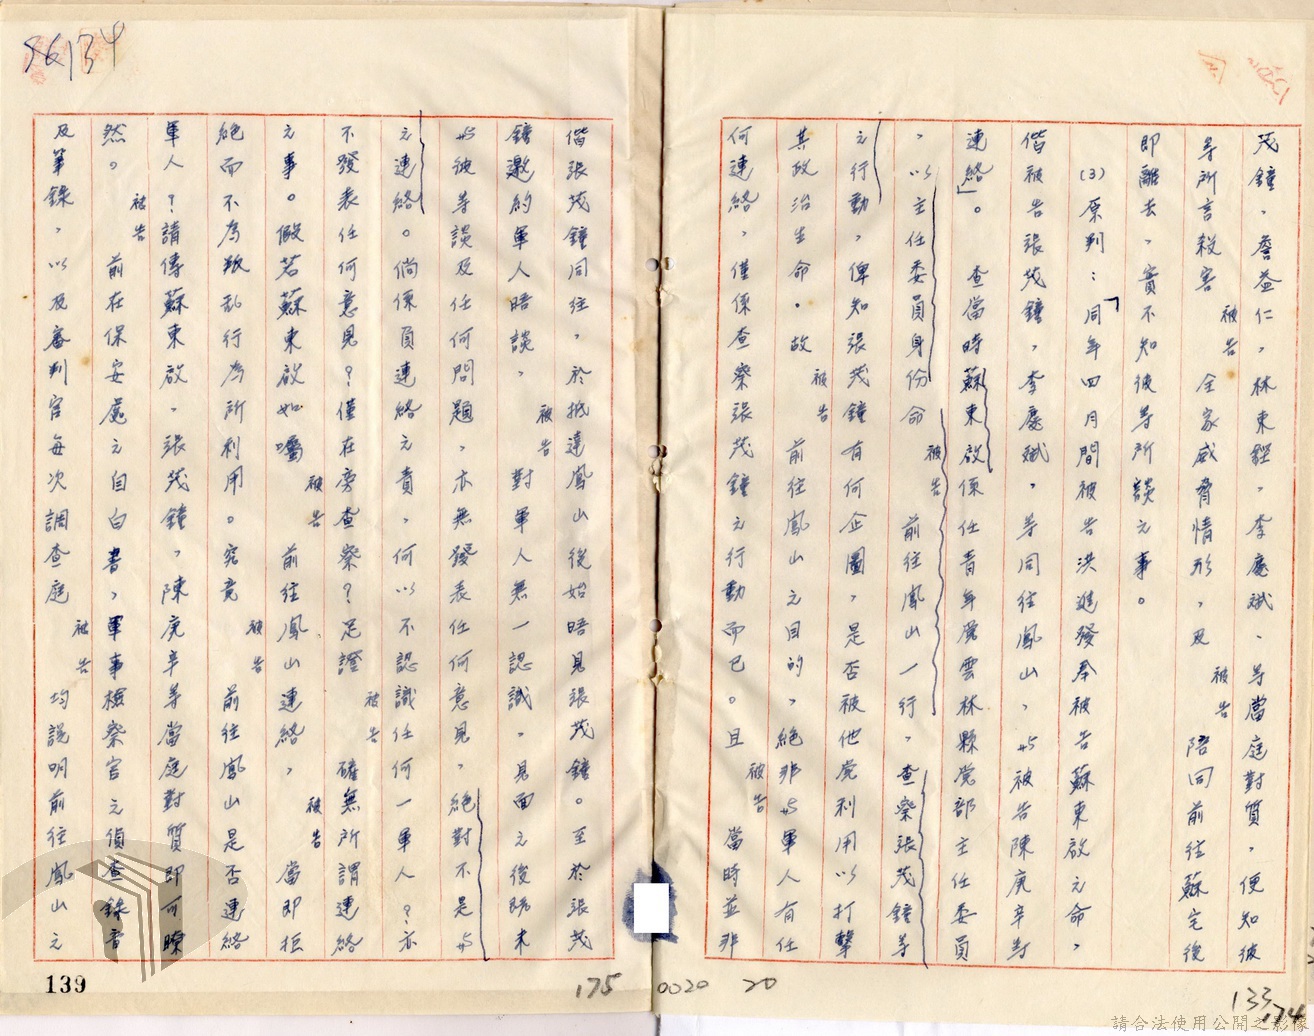 茂鐘，詹益仁，林東鏗，李慶斌、等當庭對質，便知彼
等所言殺害被告全家威脅情形，及被告陪同前往蘇宅後
即離去，實不知彼等所談之事。
(3)原判：「同年四月間被告洪進發奉被告蘇東啟之命，
偕被告張茂鐘，李慶斌，等同往鳳山，與被告陳庚辛對
連絡」。查當時蘇東啟係任青年黨雲林縣党部主任委員
，以主任委員身份命被告前往鳳山一行，查察張茂鐘等
之行動，俾知張茂鐘有何企圖，是否被他党利用以打擊
其政治生命。故被告前往鳳山之目的，絕非與軍人有任
何連絡，僅係查察張茂鐘之行動而已。且被告當時並非
偕張茂鐘同往，於抵達鳳山後始晤見張茂鐘。至於張茂
鐘邀約軍人晤談，被告對軍人無一認識，見面之後既未
與彼等談及任何問題，亦無發表任何意見，絕對不是與
之連絡。倘係負連絡之責，何以不認識任何一軍人？亦
不發表任何意見？僅在旁查察？足證被告確無所謂連絡
之事。假若蘇東啟如囑被告前往鳳山連絡，被告當即拒
絕而不為叛乱行為所利用。究竟被告前往鳳山是否連絡
軍人？請傳蘇東啟，張茂鐘，陳庚辛等當庭對質即可瞭
然。被告前在保安處之自白書，軍事檢察官之偵查錄音
及筆錄，以及審判官每次調查庭被告均說明前往鳳山之
86134
139
175
0020
20
133
174
請合法使用公開之影像